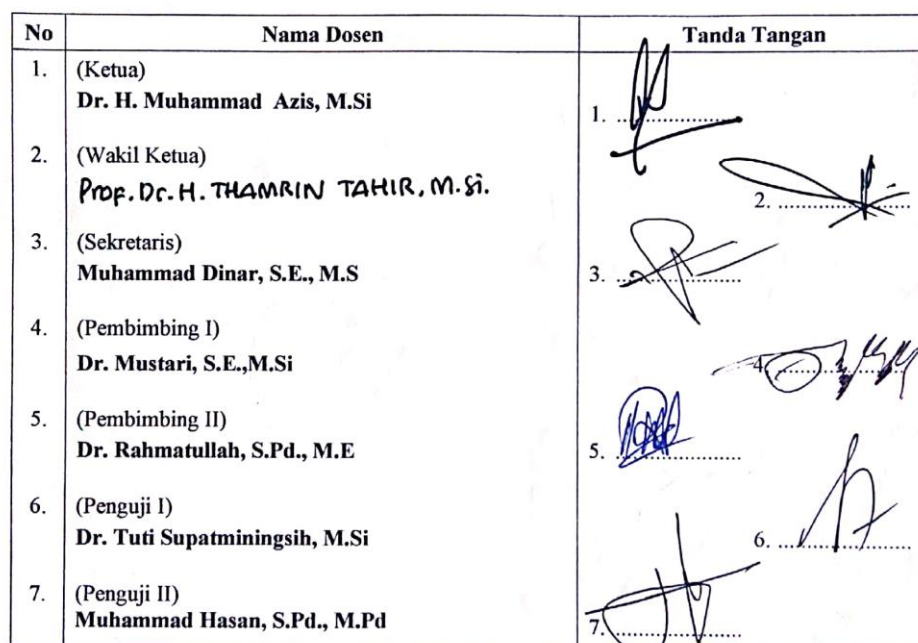 No Nama Dosen Tanda Tangan
1. (Ketua)
Dr. H. Muhammad Azis, M.Si
1. ....................
2. (Wakil Ketua)
Prof. Dr. H. THAMRIN TAHIR, M.Si.
2. ....................
3. (Sekretaris)
Muhammad Dinar, S.E., M.S
3. ....................
4. (Pembimbing I)
Dr. Mustari, S.E.,M.Si
4. ....................
5. (Pembimbing II)
Dr. Rahmatullah, S.Pd., M.E
5. ....................
6. (Penguji I)
Dr. Tuti Supatminingsih, M.Si
6. ....................
7. (Penguji II)
Muhammad Hasan, S.Pd., M.Pd
7. ....................